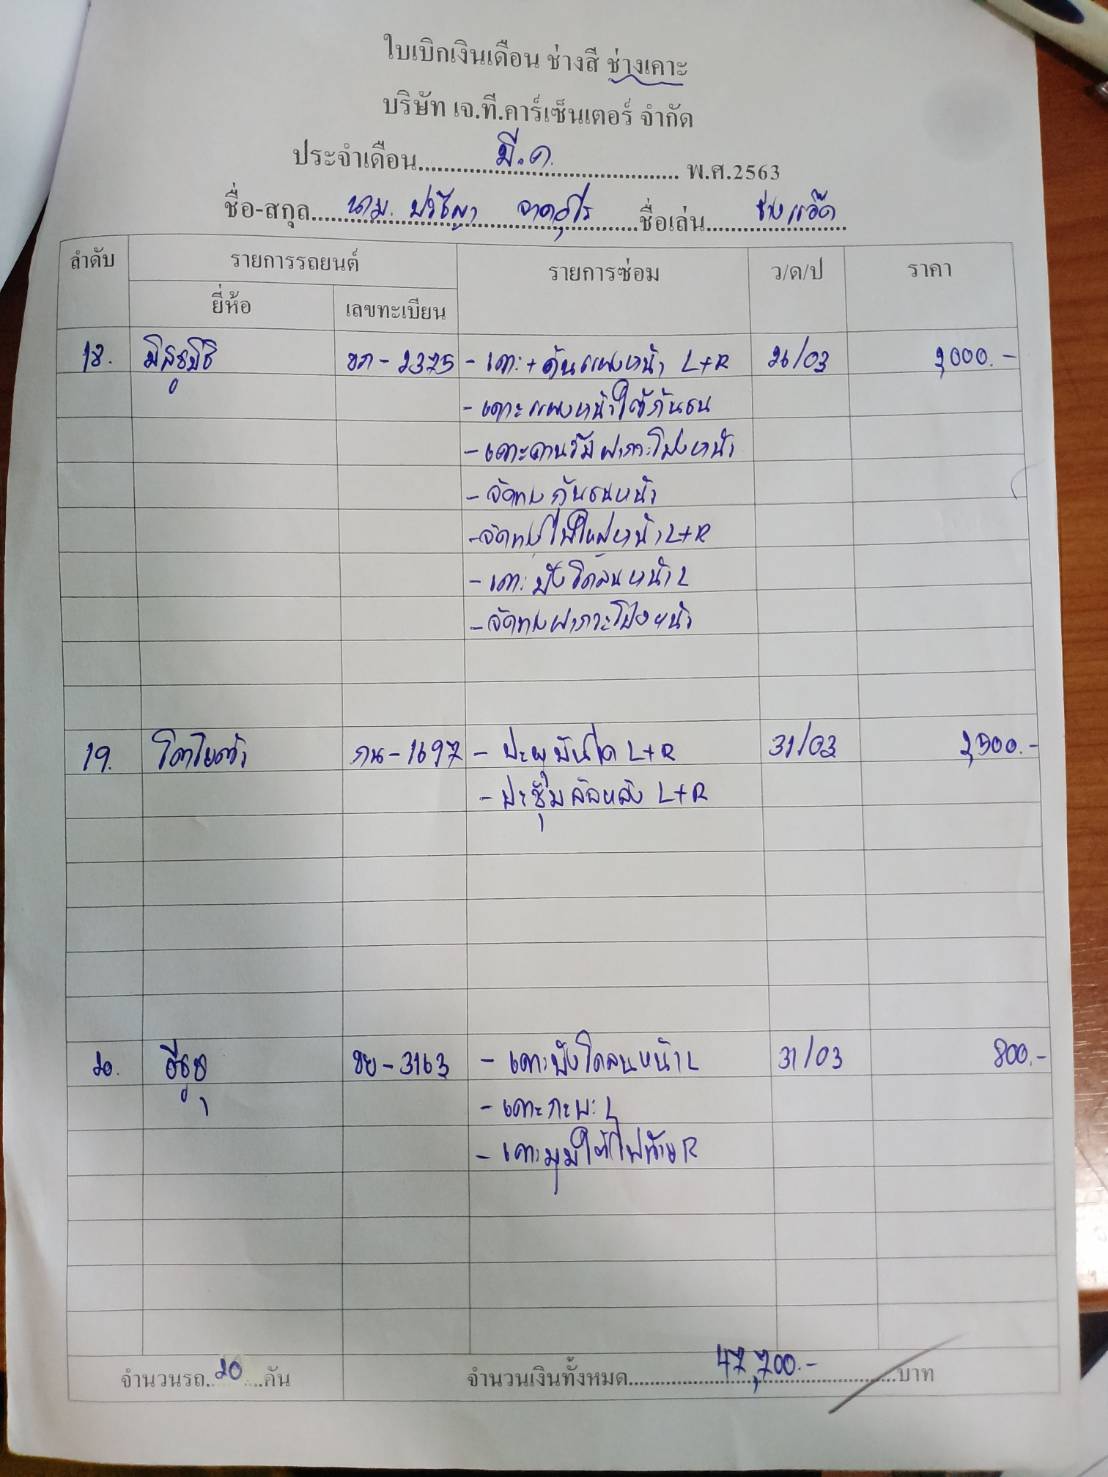 ใบเบิกเงินเดือน ช่างสี ช่างเคาะ
บริษัท เจ.ที.คาร์เซ็นเตอร์ จำกัด
ประจำเดือน มี.ค. พ.ศ.2563
ชื่อ-สกุล นาย. ปรัชญา ชื่อเล่น ช่างแอ๊ด
ลำดับ รายการรถยนต์ รายการซ่อม ว/ด/ป ราคา
ยี่ห้อ เลขทะเบียน
18. มิตซูมิชิ ขก-2375 - เคาะ+ดันแผงหน้า L+R 26/03
- เคาะแผงหน้าใต้กันชน
- เคาะคานรับฝากระโปงหน้า
- จัดทรงกันชนหน้า
- จัดทรงไฟใหญ่หน้า L+R
- เคาะบังโคลนหน้า L
- จัดทรงฝากระโปงหน้า
19. โตโยต้า กน-1697 - ปะผุบันได L+R 31/03
- ปะซุ้มล้อหลัง L+R
20. อีซูซุ ขย-3163 - เคาะบังโคลนหน้า L 31/03 800.-
- เคาะกะบะ L
- เคาะมุมใต้ไฟท้าย R
จำนวนรถ 20 คัน จำนวนเงินทั้งหมด 47,700.- บาท